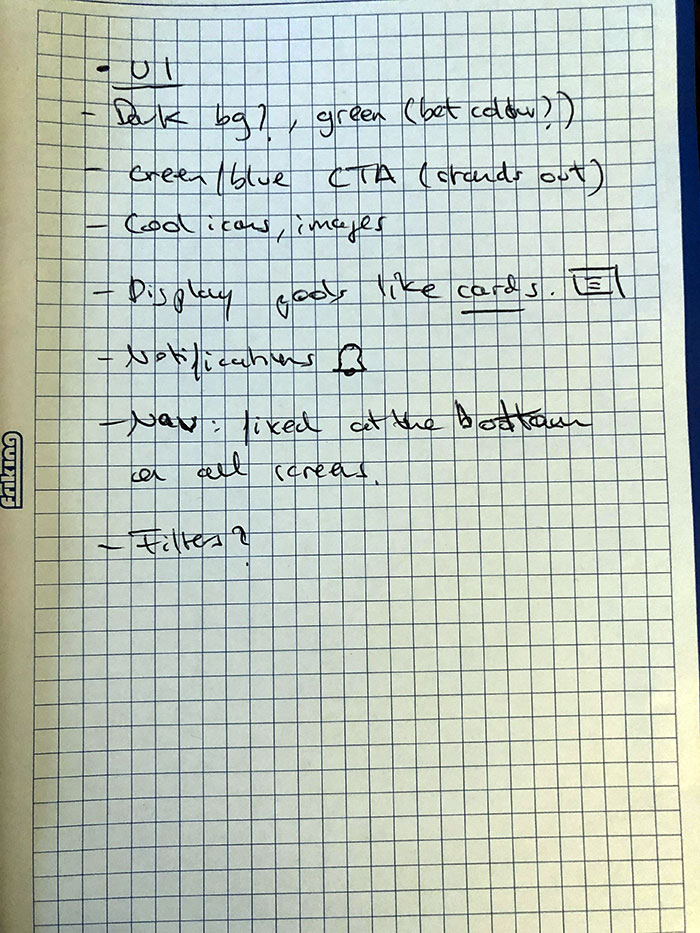 • UI
- Dark bg?, green (bet colour?)
- Green/blue CTA (stands out)
- Cool icons, images
- Display gods like cards.
- Notifications
- Nav: fixed at the Bottom
on all screens.
- Filters?